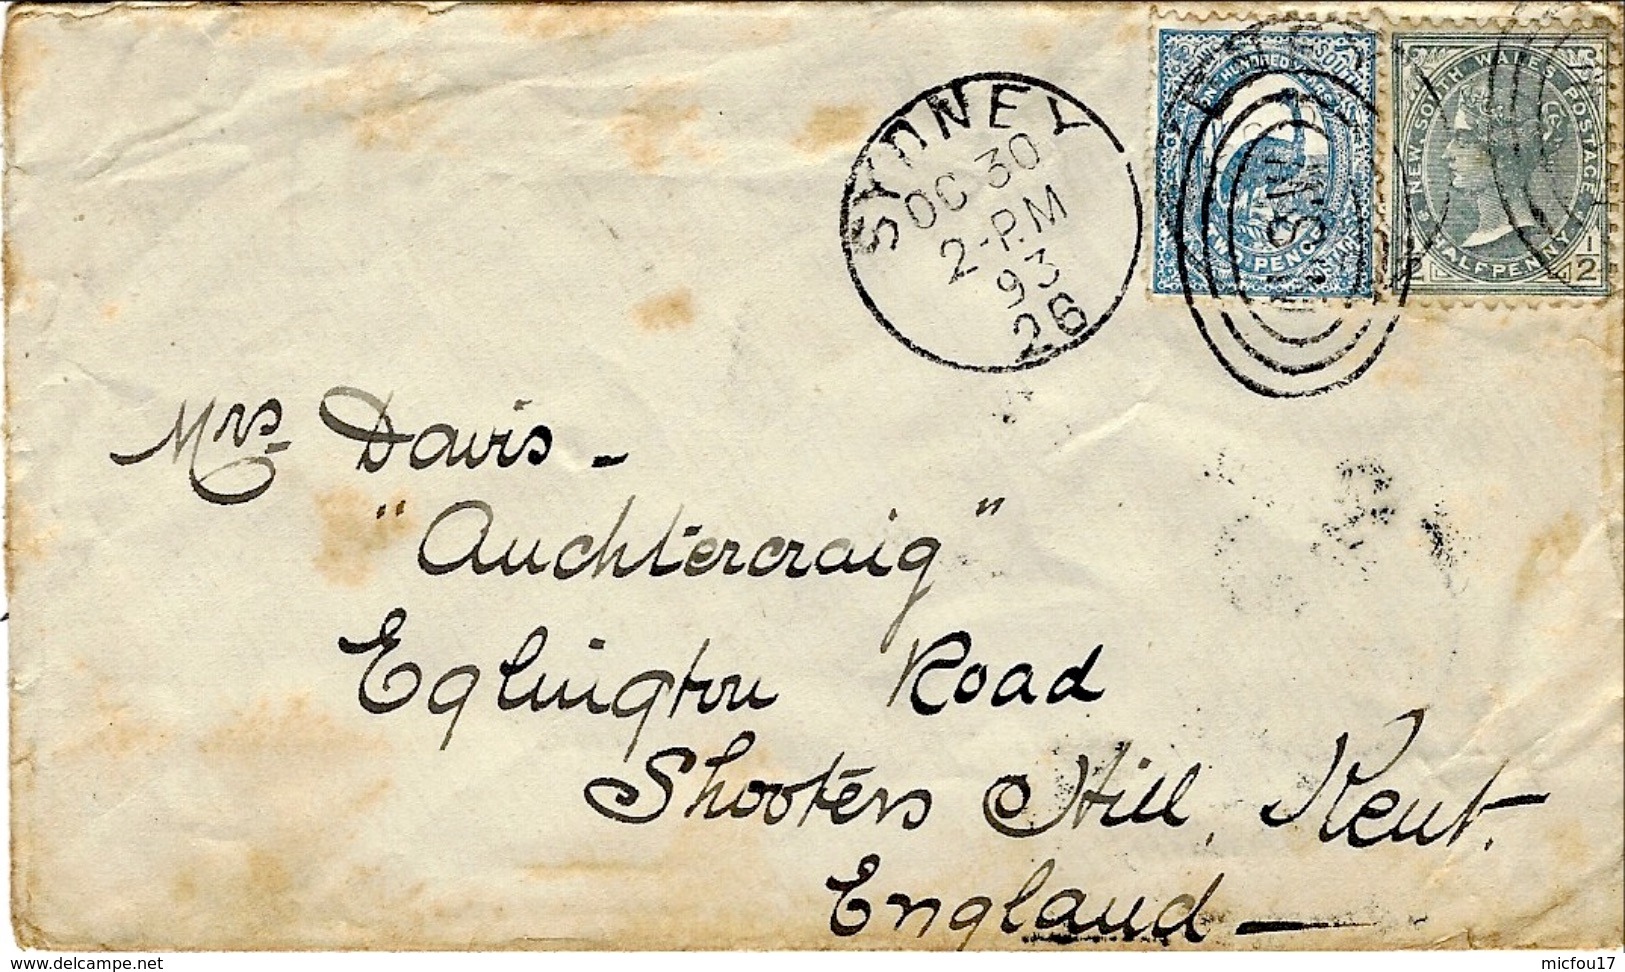 ONE HUNDRED YEARS
SOUTH
TWO PENCE
POSTAGE
NEW SOUTH WALES POSTAGE
HALFPENNY
1/2 1/2
SYDNEY
OC 30
2-P.M
93
26
NSW
Mrs Davis -
"Auchtercraig"
Eglington Road
Shooters Hill, Kent.
England —
www.delcampe.net
micfou17